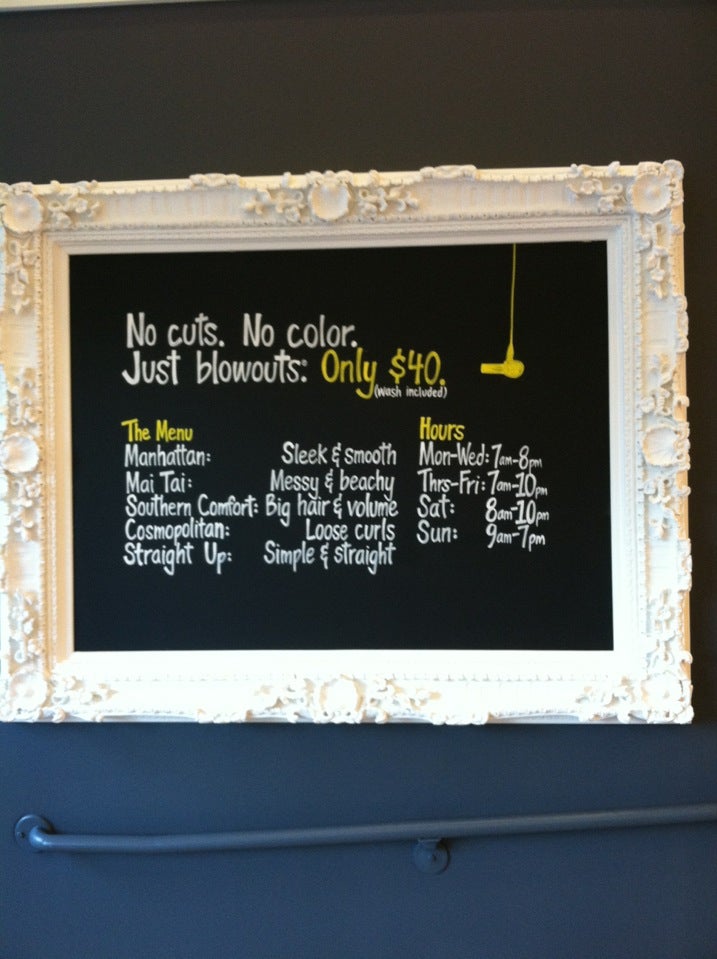 No cuts. No color.
Just blowouts: Only $40.
(wash included)
The Menu
Manhattan: Sleek & smooth
Mai Tai: Messy & beachy
Southern Comfort: Big hair & volume
Cosmopolitan: Loose curls
Straight Up: Simple & straight
Hours
Mon-Wed: 7am-8pm
Thrs-Fri: 7am-10pm
Sat: 8am-10pm
Sun: 9am-7pm